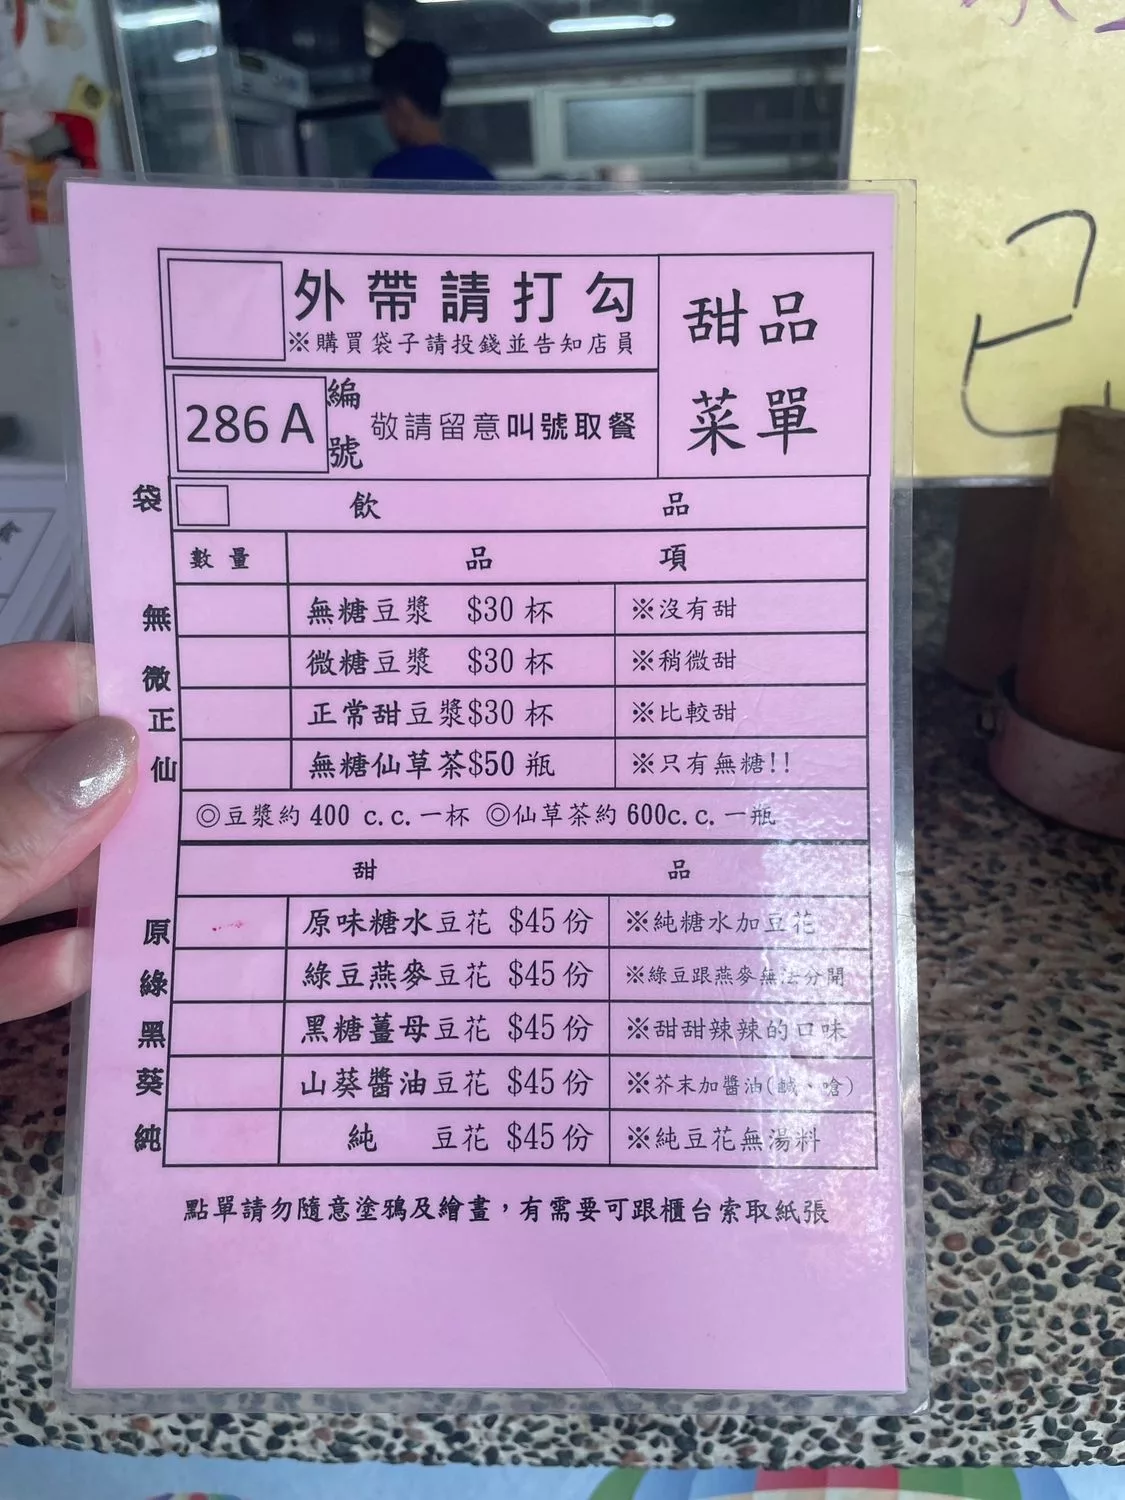 外帶請打勾
※購買袋子請投錢並告知店員
甜品
菜單
286 A
編號
敬請留意叫號取餐
袋
飲品
數量
品項
無
無糖豆漿 $30 杯
※沒有甜
微
微糖豆漿 $30 杯
※稍微甜
正
正常甜豆漿$30 杯
※比較甜
仙
無糖仙草茶$50 瓶
※只有無糖!!
◎豆漿約 400 c.c.一杯 ◎仙草茶約 600c.c.一瓶
甜品
原
原味糖水豆花 $45 份
※純糖水加豆花
綠
綠豆燕麥豆花 $45 份
※綠豆跟燕麥無法分開
黑
黑糖薑母豆花 $45 份
※甜甜辣辣的口味
葵
山葵醬油豆花 $45 份
※芥末加醬油(鹹、嗆)
純
純 豆花 $45 份
※純豆花無湯料
點單請勿隨意塗鴉及繪畫，有需要可跟櫃台索取紙張